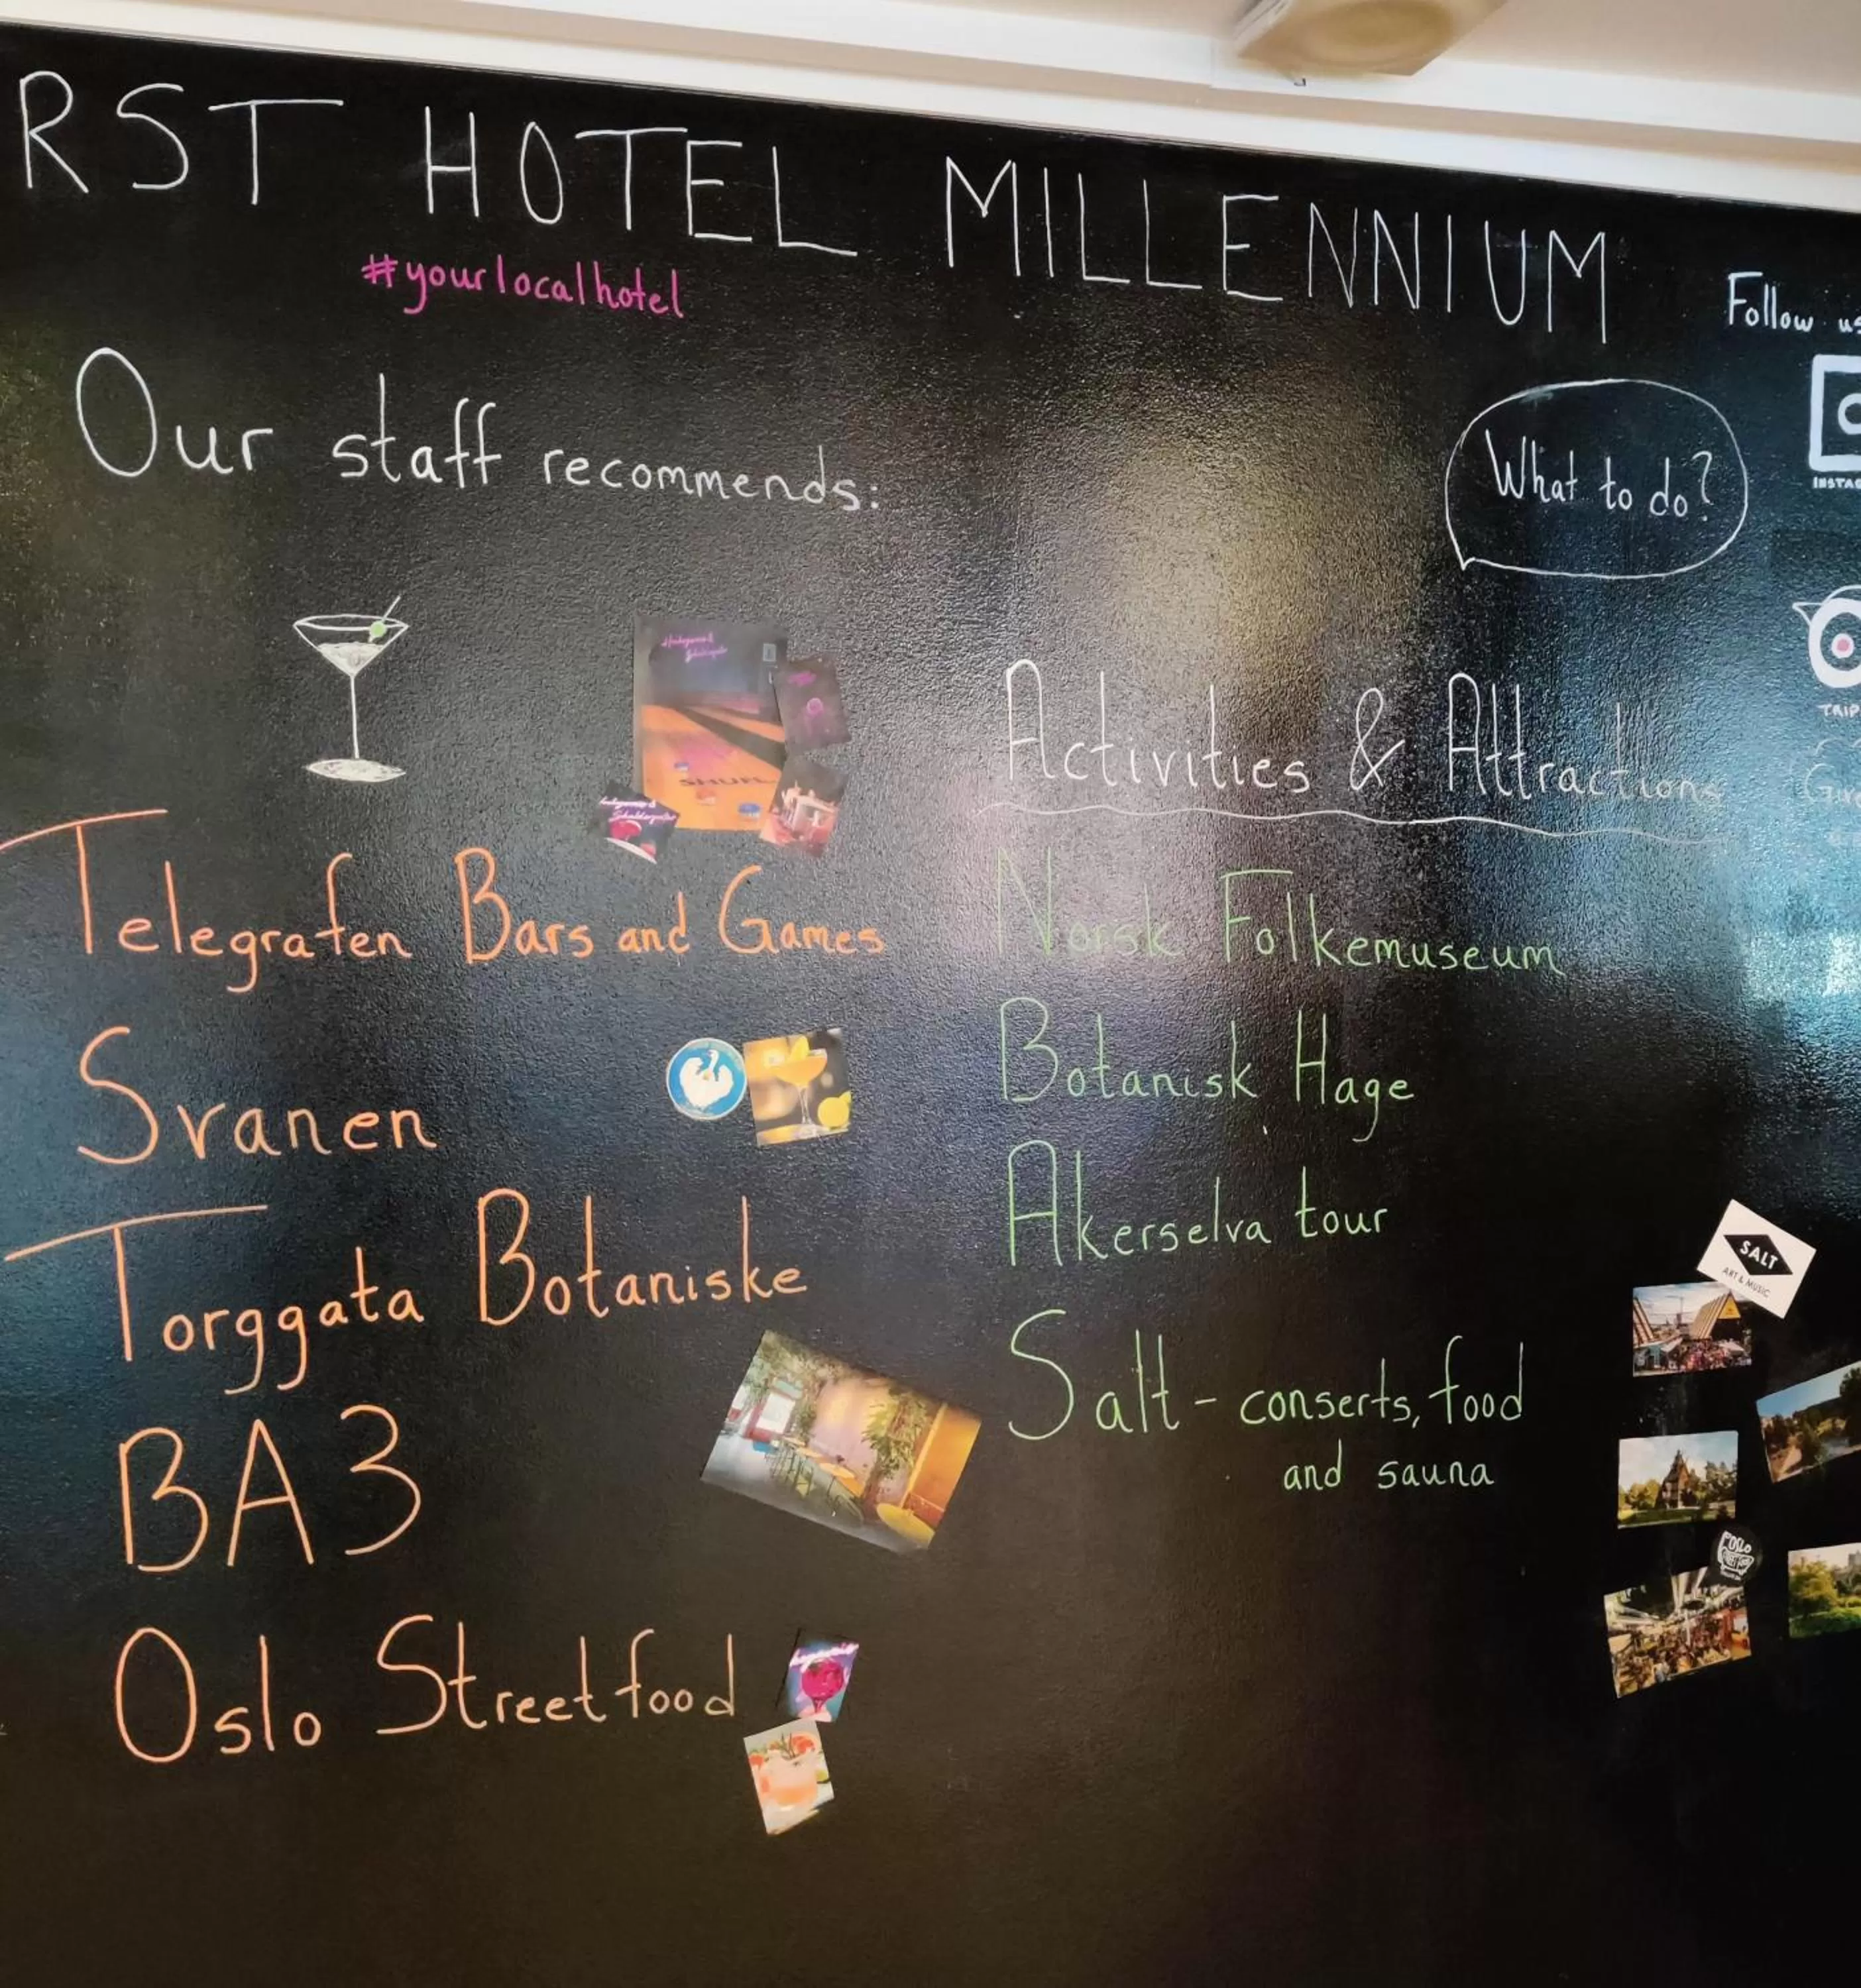 RST HOTEL MILLENNIUM
#yourlocalhotel
Follow us
Our staff recommends:
What to do?
INSTAG
TRIP
Activities & Attractions
Telegrafen Bars and Games
Svanen
Torggata Botaniske
BA3
Oslo Streetfood
Norsk Folkemuseum
Botanisk Hage
Akerselva tour
Salt - conserts, food
and sauna
SALT
ART & MUSIC
OSLO